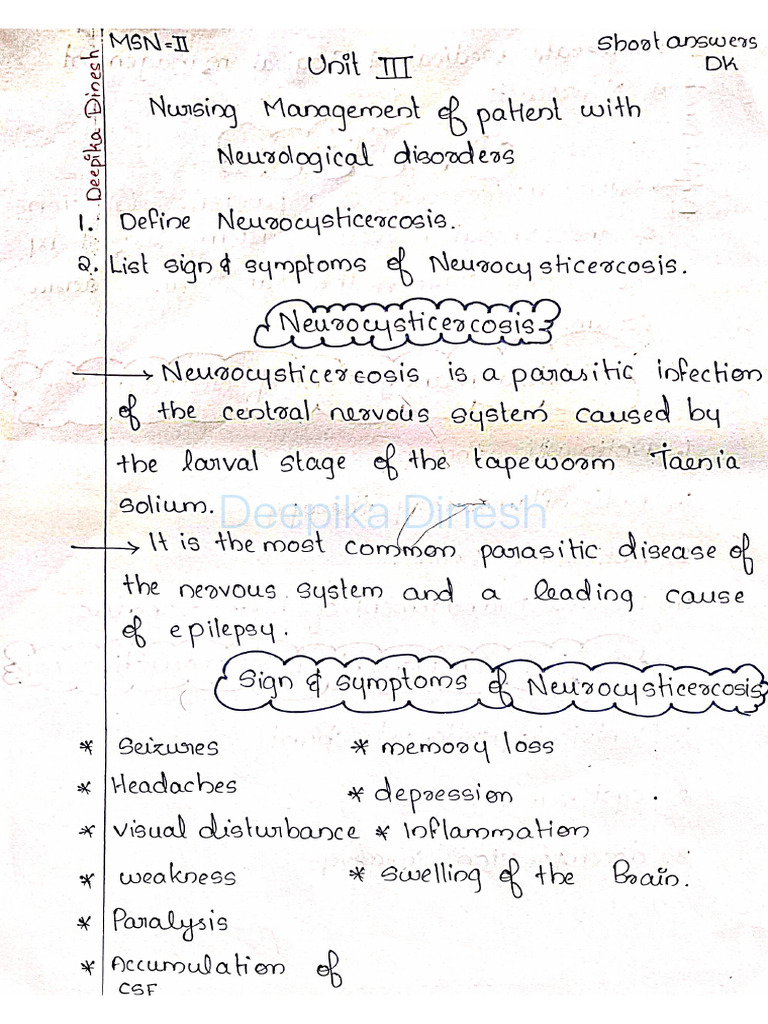 MSN-II
Short answers
DK
Deepika Dinesh
Unit III
Nursing Management of patient with
Neurological disorders
1. Define Neurocysticercosis.
2. List sign & symptoms of Neurocysticercosis.
Neurocysticercosis
→ Neurocysticercosis is a parasitic infection
of the central nervous system caused by
the larval stage of the tapeworm Taenia
solium.
Deepika Dinesh
→ It is the most common parasitic disease of
the nervous system and a leading cause
of epilepsy.
Sign & symptoms of Neurocysticercosis
* Seizures * memory loss
* Headaches * depression
* visual disturbance * Inflammation
* weakness * swelling of the Brain.
* Paralysis
* Accumulation of
CSF